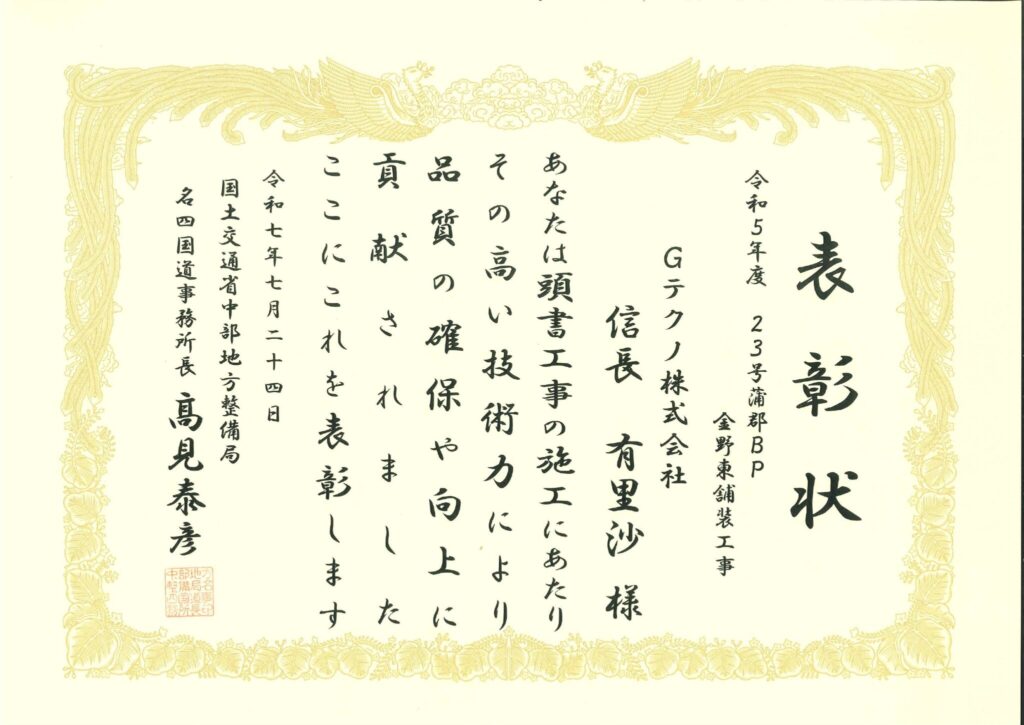 表彰状
令和5年度 23号蒲郡BP
金野東舗装工事
Gテクノ株式会社
信長 有里沙 様
あなたは頭書工事の施工にあたり
その高い技術力により
品質の確保や向上に
貢献されました
ここにこれを表彰します
令和七年七月二十四日
国土交通省中部地方整備局
名四国道事務所長 髙見泰彦